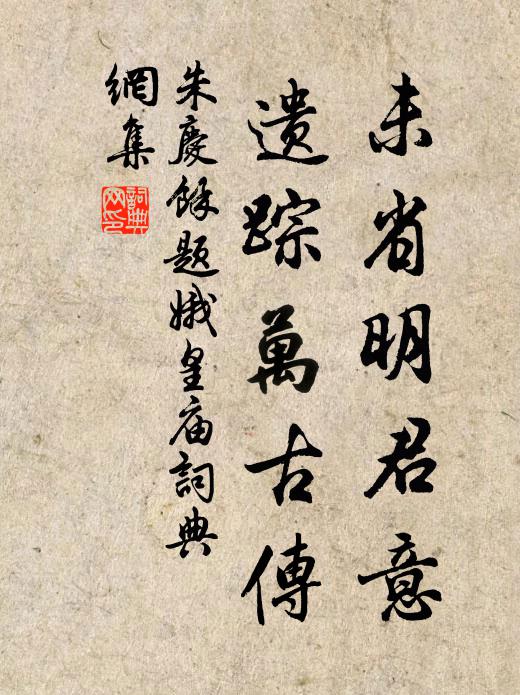 未省明君意
遗踪萬古傳
朱慶餘题娥皇庙詞典
網集
詞典网印